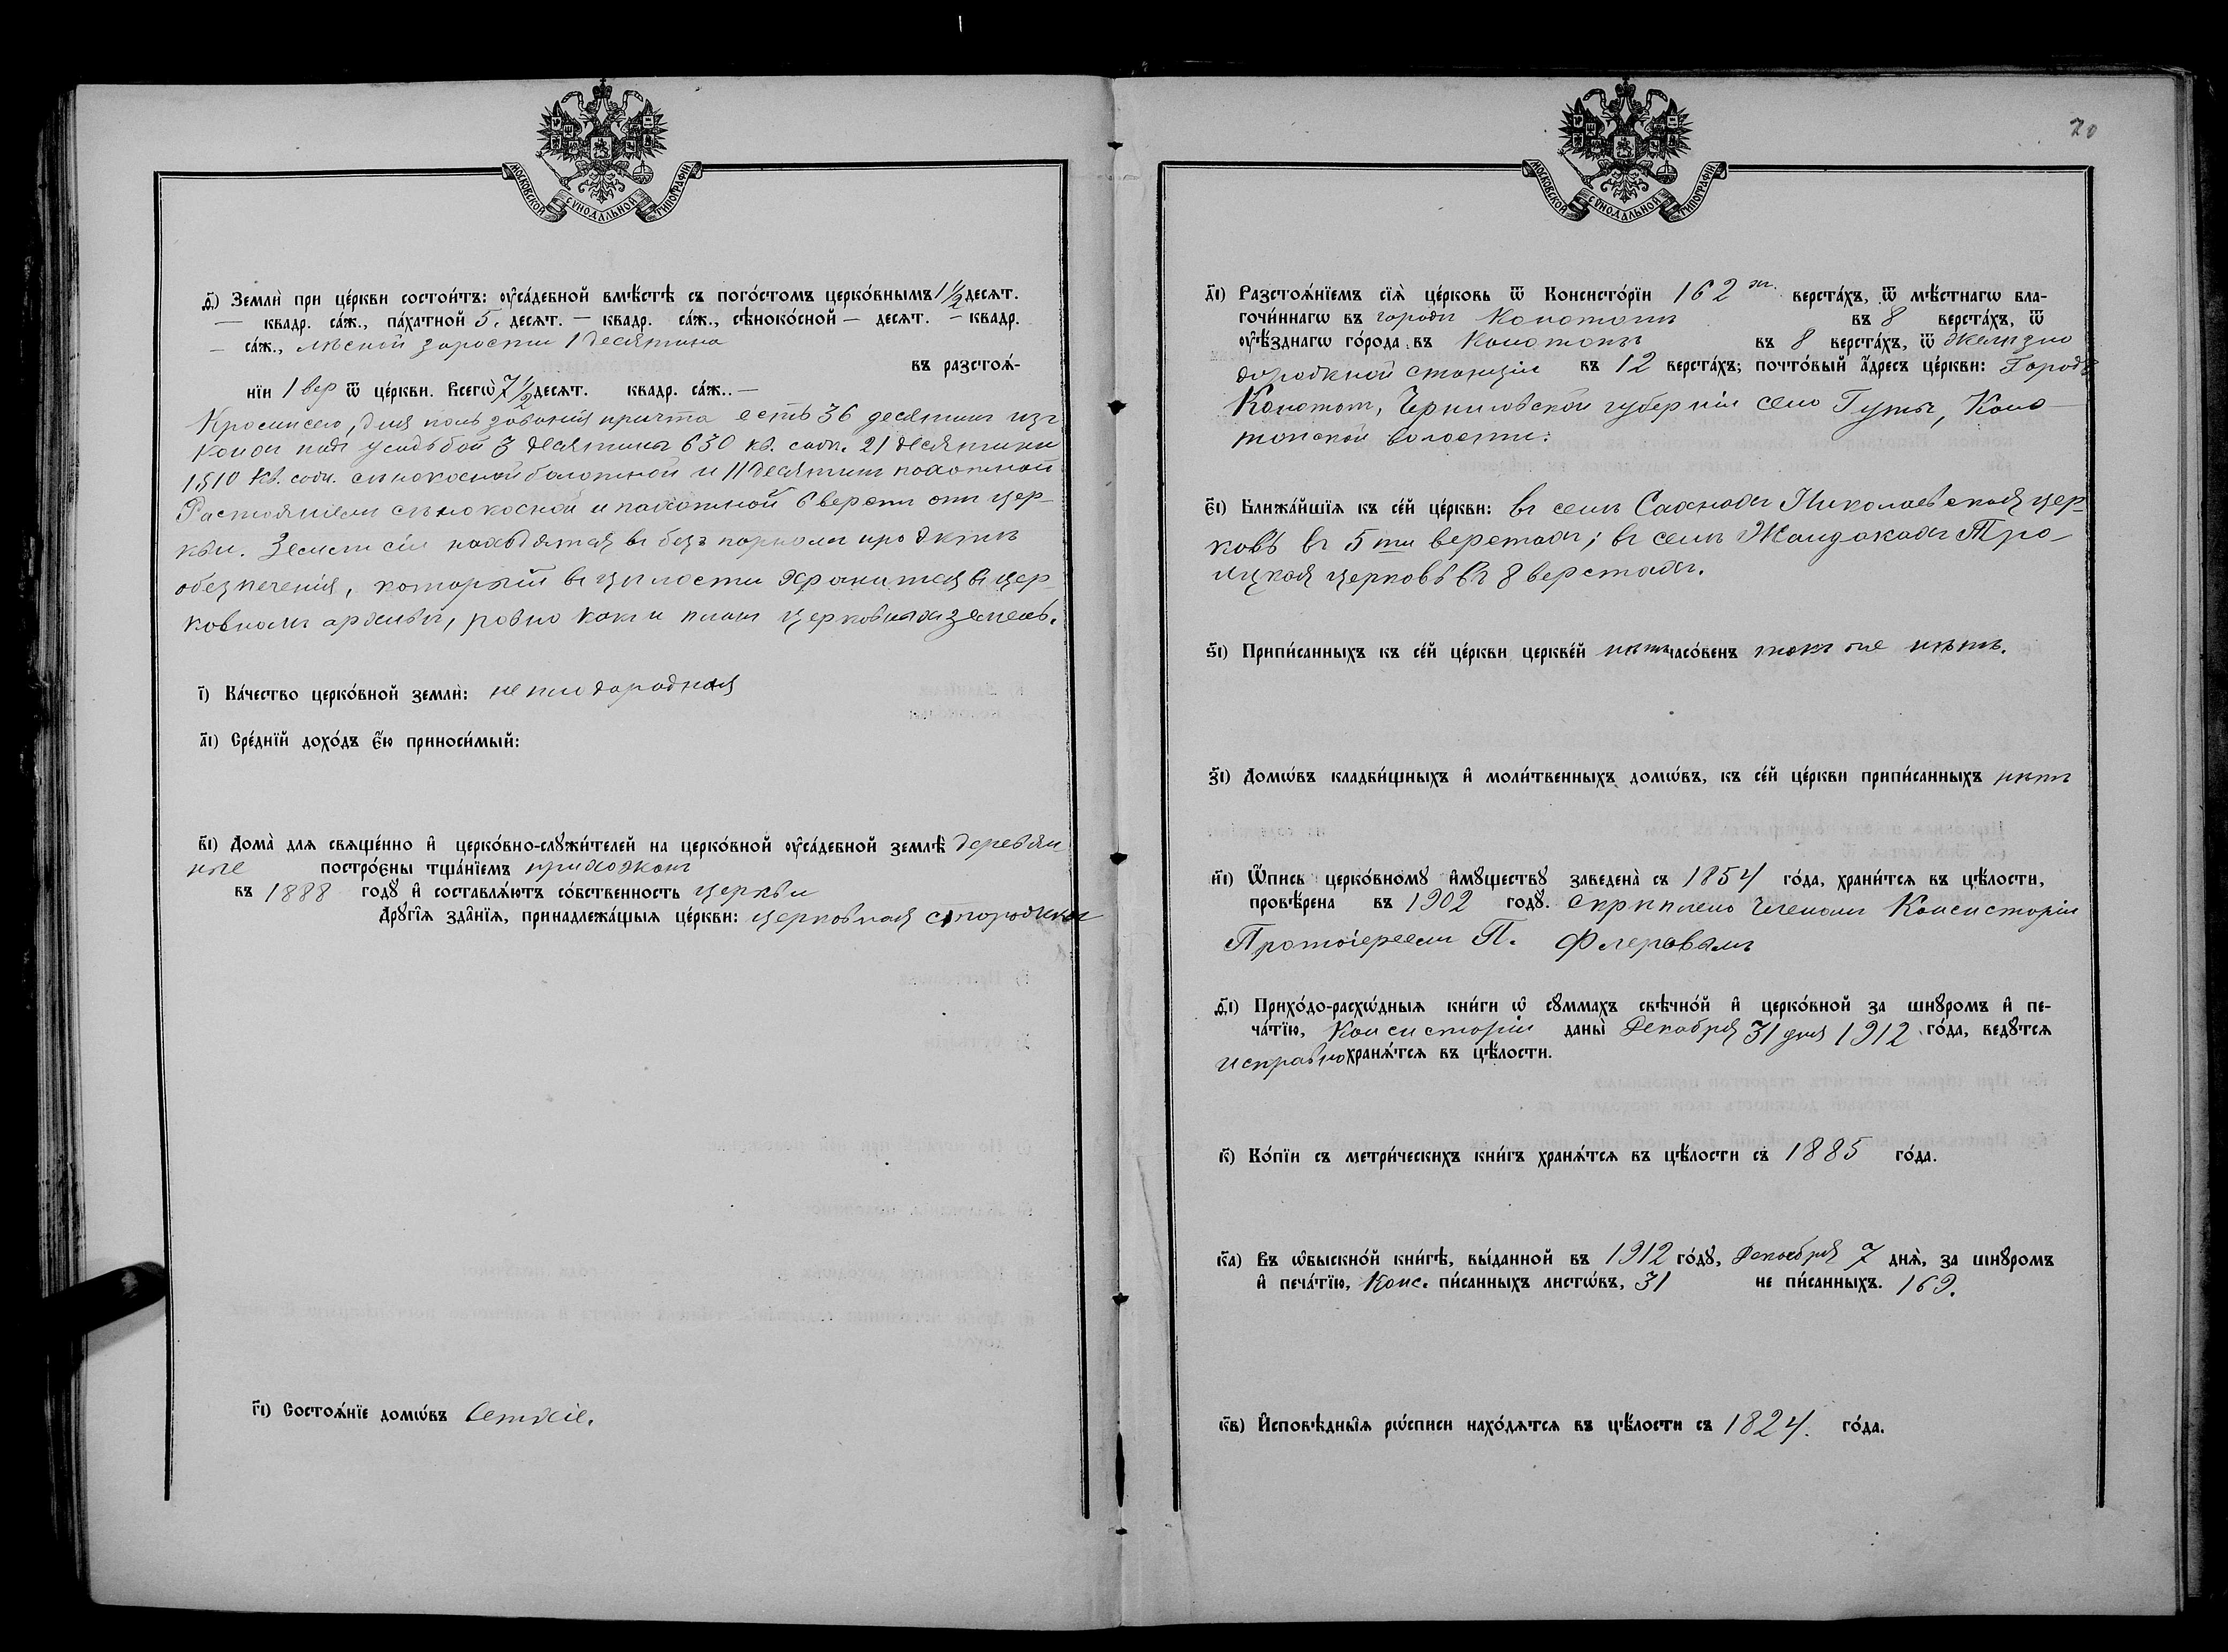 МОСКОВСКОЙ СУНОДАЛЬНОЙ ТИПОГРАФІИ
д҃) Землѝ при це́ркви состои́тъ: оуса́дебной вмѣ́стѣ съ пого́стомъ церко́внымъ 1½ десѧт.
— квадр. са́ж., па́хатной 5. десѧт. — квадр. са́ж., сѣноко́сной — десѧт. — квадр.
— са́ж., лѣсной зарости 1 десятина
въ разстоѧ́-
нїи 1 вер ѿ це́ркви. Всегѡ̀ 7½ десѧт. квадр. са́ж.. —
Кромѣ сего, для пользованія причта есть 36 десятин изъ
коихъ подъ усадьбой 3 десятины 630 кв. саж. 21 десятина
1810 кв. саж. сѣнокосной болотной и 11 десятин пахатной
Растояніем сѣнокосной и пахатной 6 верстъ отъ цер-
кви. Земли сіи находятся въ проэктѣ
обезпеченія, который въ цѣлости хранится въ цер-
ковномъ архивѣ, равно какъ и планъ церковныхъ земель.
і҃) Ка́чество церко́вной землѝ: не плодородная
а҃і) Сре́днїй дохо́дъ є҆́ю приноси́мый:
в҃і) Дома̀ длѧ свѧще́нно и҆ церко́вно-слꙋжи́телей на церко́вной оуса́дебной землѣ̀ деревян-
ные постро́єны тща́нїемъ прихожанъ
въ 1888 годꙋ̀ и҆ составлѧ́ютъ со́бственность церкви
Дрꙋгі̑ѧ зда̑нїѧ, принадлежа́щыѧ це́ркви: церковная сторожка
г҃і) Состоѧ́нїе домѡ́въ Ветхіе.
20
МОСКОВСКОЙ СУНОДАЛЬНОЙ ТИПОГРАФІИ
д҃і) Разстоѧ́нїемъ сїѧ̀ це́рковь ѿ Консисто́рїи 162 хъ верста́хъ, ѿ мѣ́стнагѡ бла-
гочи́ннагѡ въ городѣ Конотопѣ въ 8 верста́хъ, ѿ
оуѣ́зднагѡ го́рода въ Конотопѣ въ 8 верста́хъ, ѿ Желѣзно
дорожной станціи въ 12 верста́хъ; почто́вый а҆́дресъ це́ркви: Городъ
Конотоп, Черниговской губерніи село Гуты, Коно-
топской волости.
є҃і) Ближа́йшїѧ къ се́й це́ркви: въ селѣ Сахнахъ Николаевская цер-
ковь въ 5 ти верстахъ; въ селѣ Жолдакахъ Тро-
ицкая церковь въ 8 верстахъ.
ѕ҃і) Припи́санныхъ къ се́й це́ркви церкве́й нѣтъ часо́венъ также нѣтъ.
з҃і) Домѡ́въ кладби́щныхъ и҆ моли́твенныхъ домѡ́въ, къ се́й це́ркви припи́санныхъ нѣтъ
и҃і) Ѡ҆пись церко́вномꙋ и҆мꙋществꙋ̀ заведена̀ съ 1854 го́да, храни́тсѧ въ цѣ́лости,
провѣ́рена въ 1902 годꙋ̀. Скрѣплено членомъ Консисторіи
Протоіереемъ П. Флеровымъ
д҃і) Прихо́до-расхѡ́дныѧ кни́ги ѡ҆ сꙋммахъ свѣчно́й и҆ церко́вной за шнꙋро́мъ и҆ пе-
ча́тїю, Консисторіи даны̀ Декабря 31 дня 1912 го́да, ведꙋ́тсѧ
исправно хранѧ́тсѧ въ цѣ́лости.
к҃) Ко́пїи съ метри́ческихъ кни́гъ хранѧ́тсѧ въ цѣ́лости съ 1885 го́да.
к҃а) Въ ѡ҆быскно́й кни́гѣ, вы́данной въ 1912 го́дꙋ, Декабря 7 днѧ̀, за шнꙋро́мъ
и҆ печа́тїю, Конс. пи́санныхъ листѡ́въ, 31 не пи́санныхъ. 169.
к҃в) И҆сповѣ́дныѧ рѡ́списи нахо́дѧтсѧ въ цѣ́лости съ 1824. го́да.